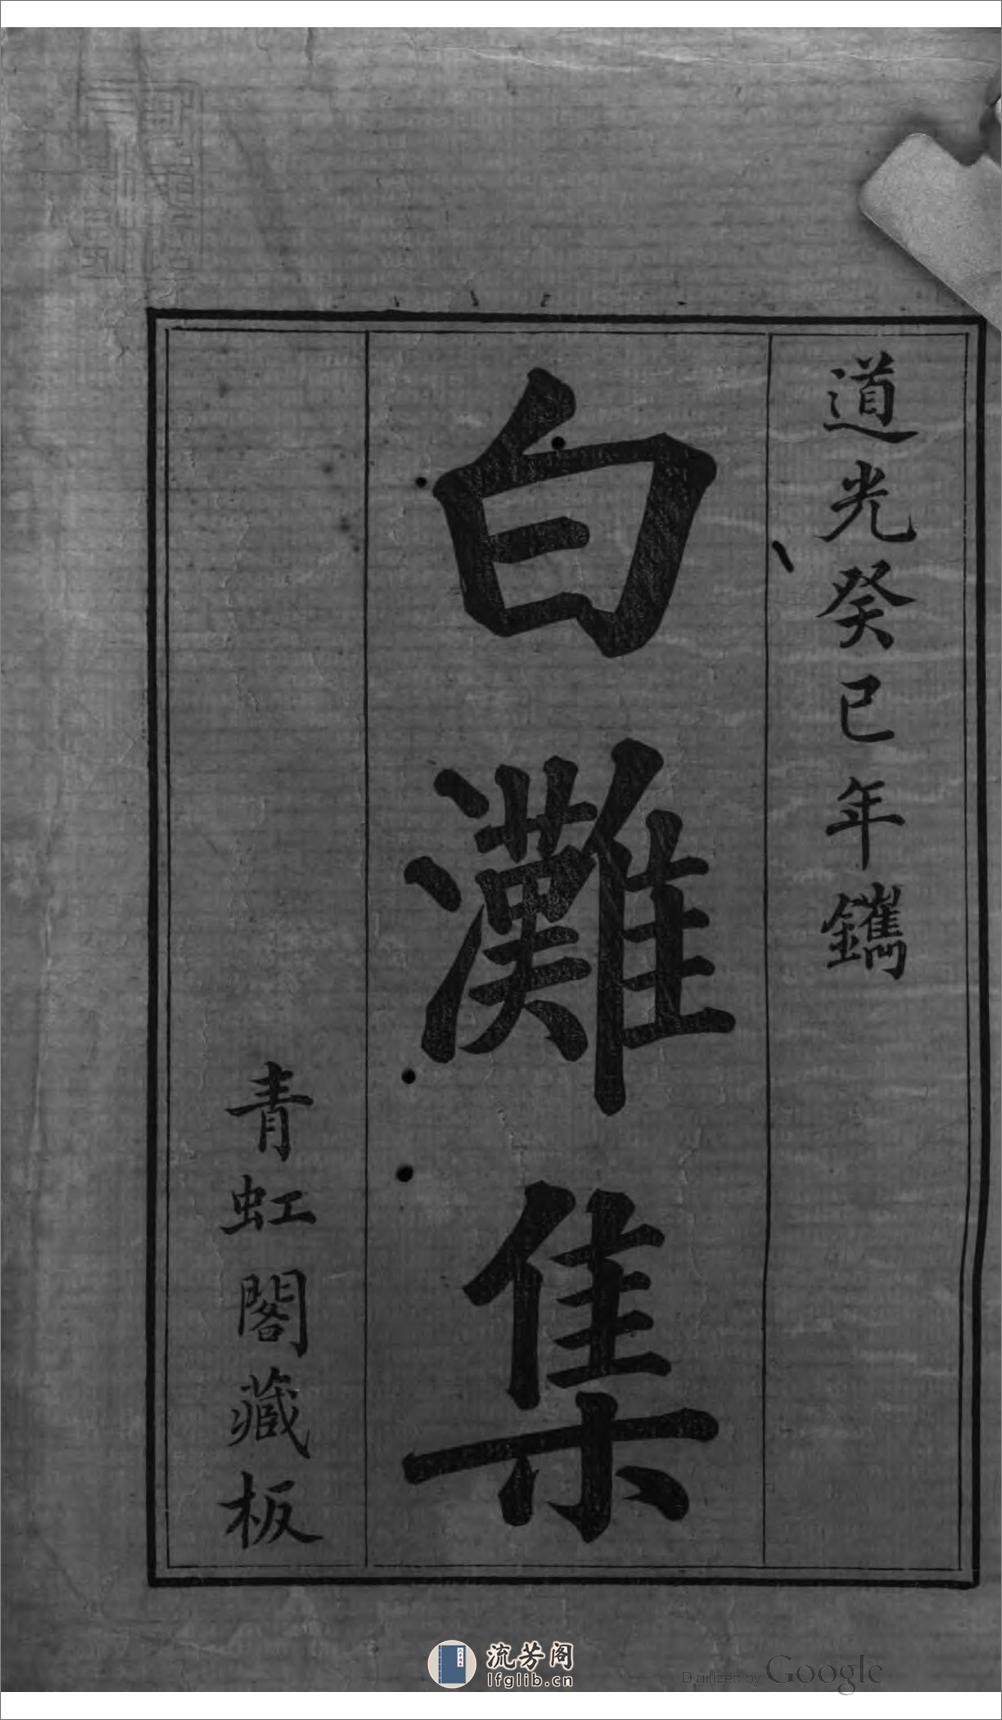 道光癸巳年鐫
白灘集
青虹閣藏板
流芳阁
lfglib.cn
Digitized by Google